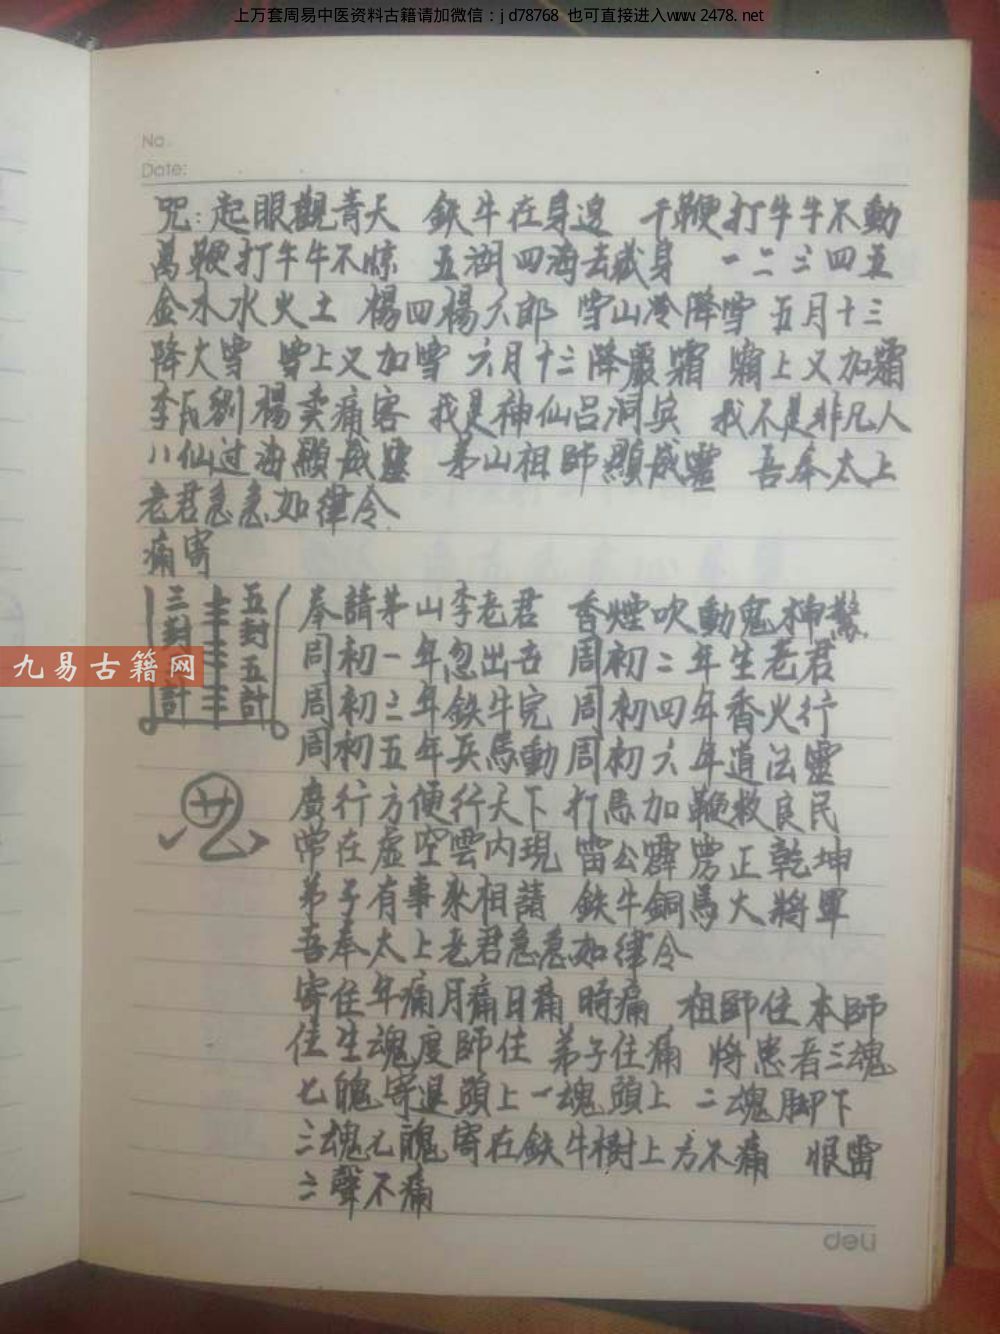 上万套周易中医资料古籍请加微信：jd78768 也可直接进入www.2478.net
No.
Date:
咒：起眼觀青天 鉄牛在身边 千鞭打牛牛不動
萬鞭打牛牛不惊 五湖四海去藏身 一二三四五
金木水火土 楊四楊六郎 雪山冷降雪 五月十三
降大雪 雪上又加雪 六月十三降嚴霜 霜上又加霜
李 劉楊 痛客 我是神仙吕洞宾 我不是非凡人
八仙过海顯威靈 茅山祖師顯威靈 吾奉太上
老君急急如律令
痛寄
三封 計
五封五計
奉請茅山李老君 香煙吹動鬼神驚
周初一年忽出古 周初二年生老君
周初三年鉄牛完 周初四年香火行
周初五年兵馬動 周初六年道法靈
廣行方便行天下 打馬加鞭救良民
常在虚空雲内現 雷公霹雳正乾坤
弟子有事來相請 鉄牛銅馬火將軍
吾奉太上老君急急如律令
寄住年痛月痛日痛時痛 祖師住本師
住生魂度師住 弟子住痛 將患者三魂
七魄寄退頭上一魂頭上 二魂脚下
三魂七魄寄在鉄牛樹上方不痛 恨雷
三聲不痛
九易古籍网
deli